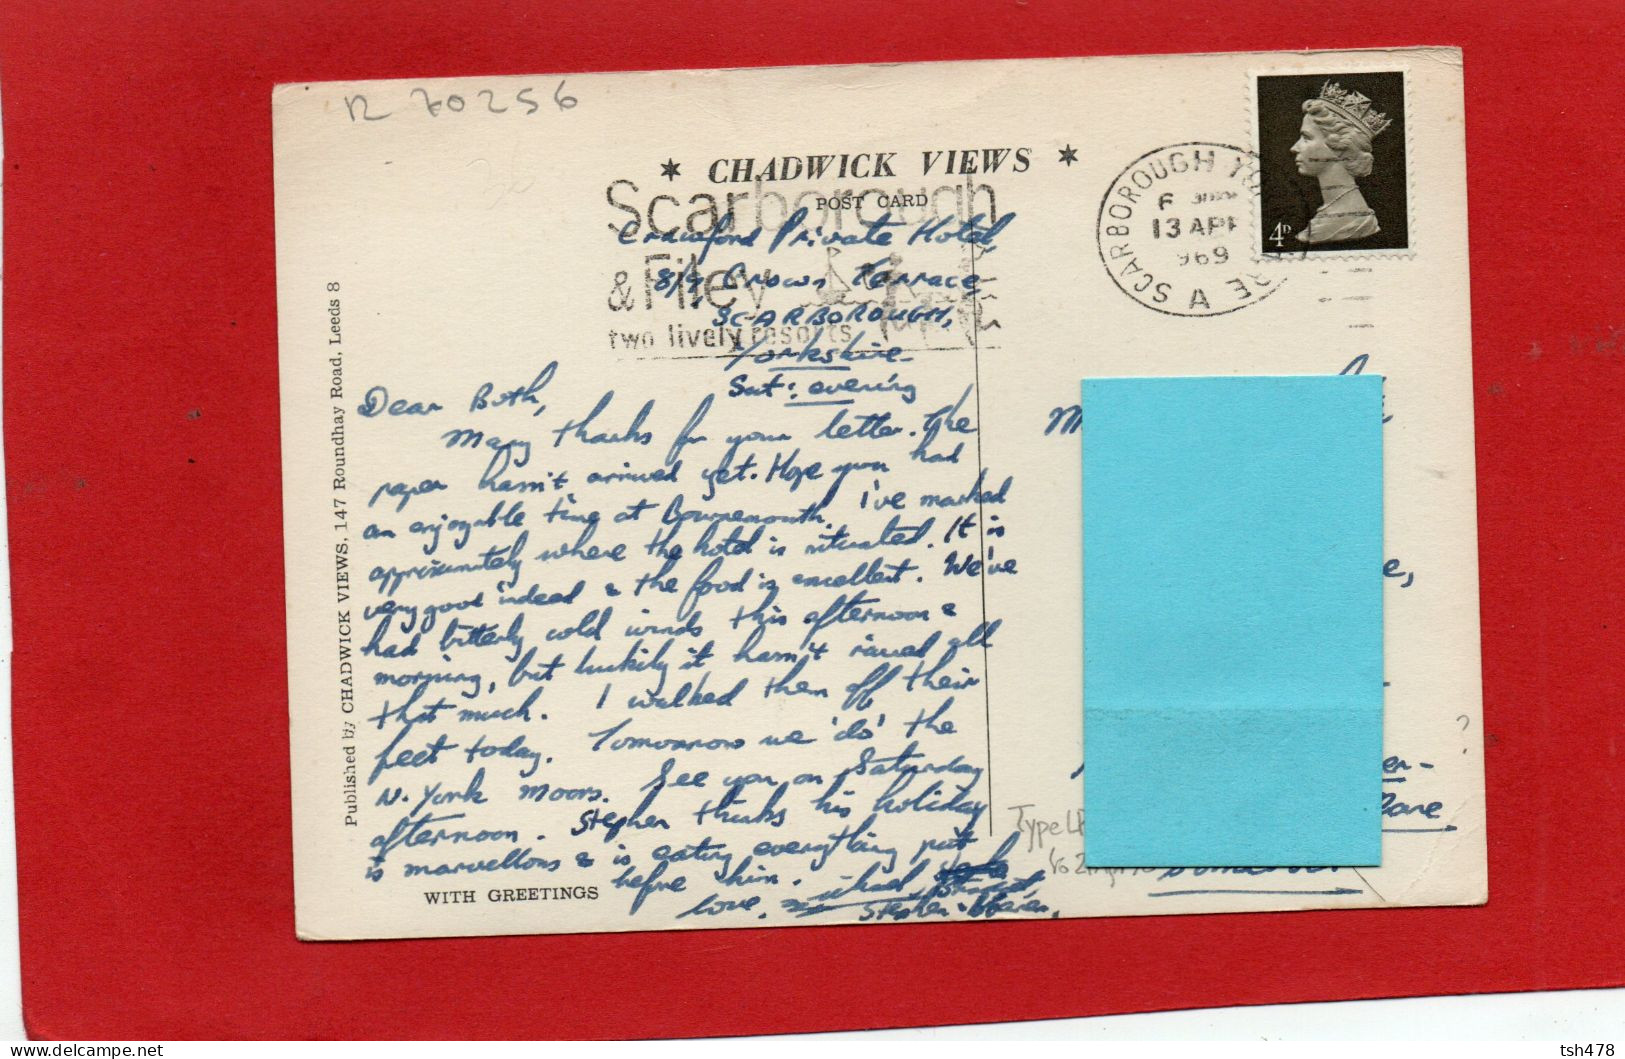 70256
* CHADWICK VIEWS *
POST CARD
Scarborough
& Filey
two lively resorts
SCARBOROUGH YORKSHIRE A
13 APR
969
4D
Crawford Private Hotel,
8/9 Crown Terrace,
SCARBOROUGH,
Yorkshire
Sat: evening
Dear Both,
Many thanks for your letter. The
paper hasn't arrived yet. Hope you had
an enjoyable time at Bournemouth. I've marked
approximately where the hotel is situated. It is
very good indeed & the food is excellent. We've
had bitterly cold winds this afternoon &
morning, but luckily it hasn't rained all
that much. I walked them off their
feet today. Tomorrow we 'do' the
N. York Moors. See you on Saturday
afternoon. Stephen thinks his holiday
is marvellous & is eating everything put
before him.
Love, Michael
Stephen & Karen.
WITH GREETINGS
Published by CHADWICK VIEWS, 147 Roundhay Road, Leeds 8
M
e,
en-
Mare
Type
?
tsh478